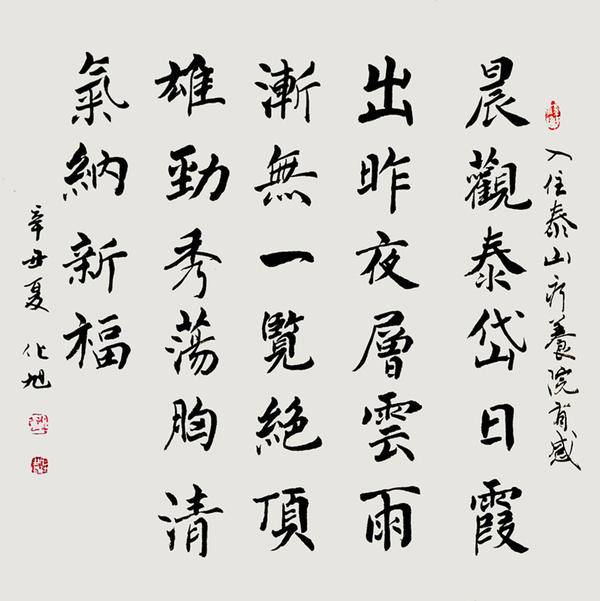 入住泰山疗養院有感
晨觀泰岱日霞
出昨夜層雲雨
漸無一覽絕頂
雄勁秀蕩胸清
氣納新福
辛丑夏 化旭